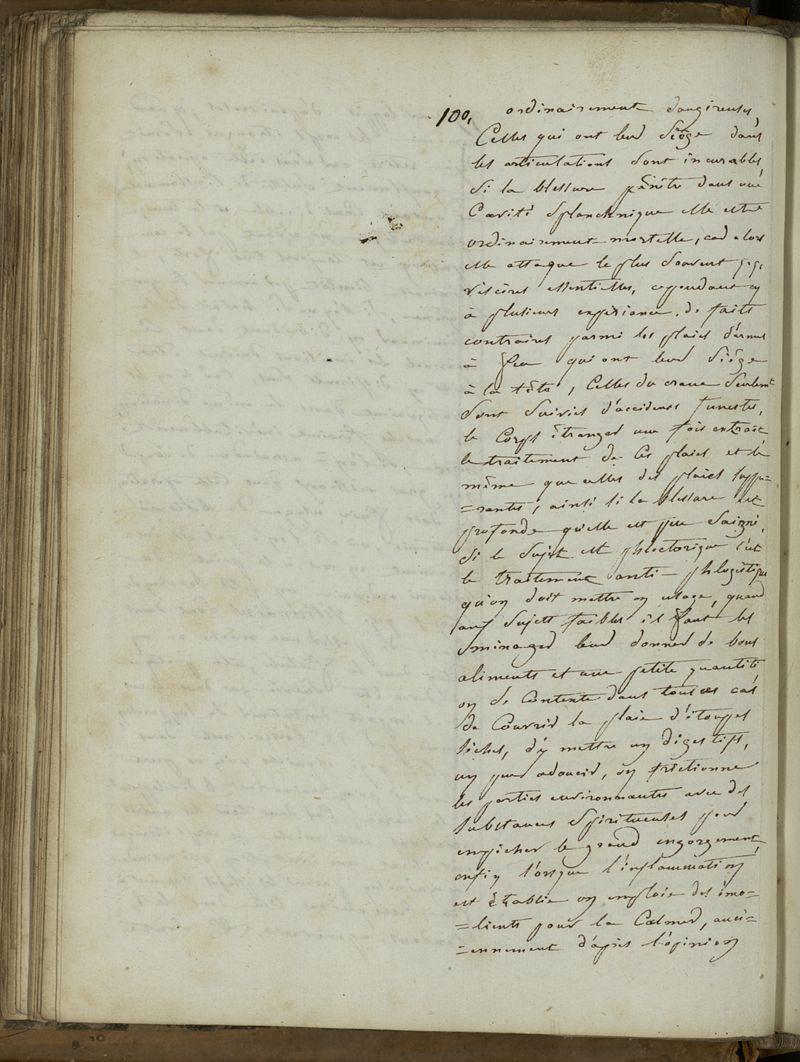 100,
ordinairement dangéreuses,
Celles qui ont leur Siége dans
les articulations sont incurables,
Si la blessure pénètre dans une
Cavité Splanchnique elle est
ordinairement mortelle, car alors
elle attaque le plus souvent
viscéres essentielles, cependant on
à plusieurs expérience de faits
contraires parmi les plaies d'armes
à feu qui ont leur Siége
à la tête, Celles du crane seulemt
sont suivies d'accidens funestes,
le Corps étranger une fois extrait
le traitement de Ces plaies est le
même que celles des plaies suppu=
=rantes, ainsi si la blessure est
profonde qu'elle est peu Saigné,
Si le Sujet est pléctorique c'est
le traitement anti-phlogistique
qu'on doit mettre en usage, quand
aux Sujets faibles il faut les
ménager leur donner de bons
aliments et une petite quantité
on se Contente dans tout ces cas
de Couvrir la plaie d'étoupes
séches, d'y mettre un digestifs,
un peu adoucir, on frictionne
les parties environnantes avec des
substances Spiritueuses pour
empécher le grand engorgement,
enfin l'orsque l'inflammation
est établie on emploie des émo=
=lients pour la Calmer, anci=
=ennement d'après l'opinion